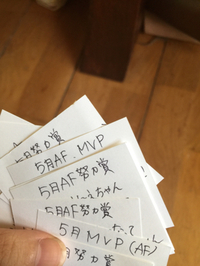 努力賞
5月AF MVP
5月AF努力賞
ちゃん
5月AF努力賞
5月MVP(AF)
努力賞